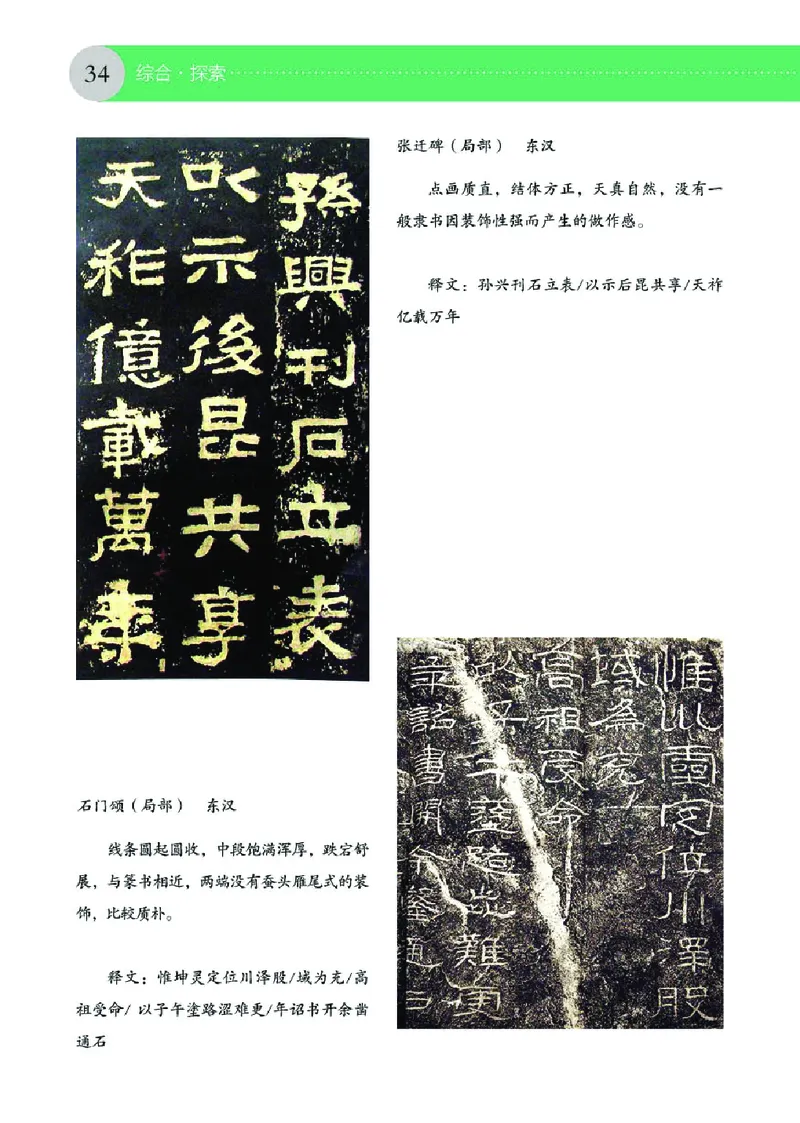 34
综合·探索
张迁碑（局部） 东汉
点画质直，结体方正，天真自然，没有一
般隶书因装饰性强而产生的做作感。
释文：孙兴刊石立表/以示后昆共享/天祚
亿载万年
孫興刊石立表
以示後昆共享
天祚億載萬年
石门颂（局部） 东汉
线条圆起圆收，中段饱满浑厚，跌宕舒
展，与篆书相近，两端没有蚕头雁尾式的装
饰，比较质朴。
释文：惟坤灵定位川泽股/域为充/高
祖受命/ 以子午塗路涩难更/年诏书开余凿
通石
惟 定位川澤股
域為充
高祖受命
以子午塗路 難更
詔書開余鑿通石